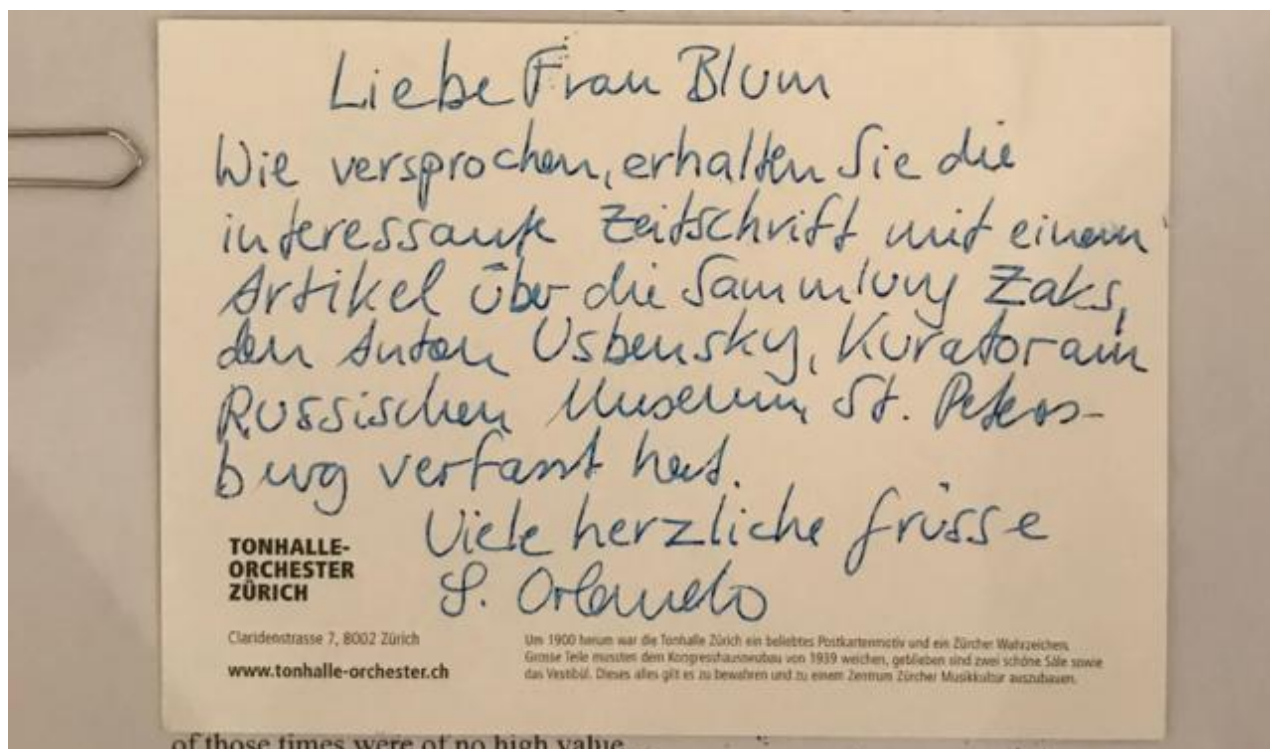 Liebe Frau Blum
Wie versprochen, erhalten Sie die
interessante Zeitschrift mit einem
Artikel über die Sammlung Zaks,
den Anton Usbensky, Kurator am
Russischen Museum St. Peters-
burg verfasst hat.
Viele herzliche Grüsse
S. Orlando
TONHALLE-
ORCHESTER
ZÜRICH
Claridenstrasse 7, 8002 Zürich
www.tonhalle-orchester.ch
Um 1900 herum war die Tonhalle Zürich ein beliebtes Postkartenmotiv und ein Zürcher Wahrzeichen.
Grosse Teile mussten dem Kongresshausneubau von 1939 weichen, geblieben sind zwei schöne Säle sowie
das Vestibül. Dieses alles gilt es zu bewahren und zu einem Zentrum Zürcher Musikkultur auszubauen.
of those times were of no high value